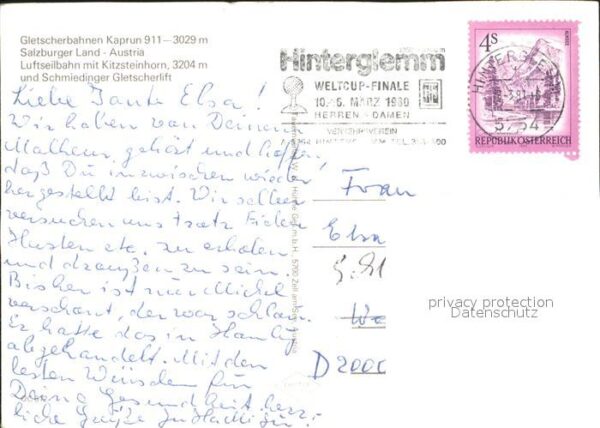 Gletscherbahnen Kaprun 911—3029 m
Salzburger Land - Austria
Luftseilbahn mit Kitzsteinhorn, 3204 m
und Schmiedinger Gletscherlift
Hinterglemm
WELTCUP-FINALE
MÄRZ 1980
HERREN - DAMEN
VERKEHRSVEREIN
4 S
REPUBLIK ÖSTERREICH
Liebe Tante Elsa!
Wir haben von Deinem
gehört und hoffen,
daß Du inzwischen wieder
hergestellt bist. Wir selber
versuchen uns trotz Fieber
Husten etc. zu erholen
und draußen zu sein.
Bisher ist nur Michel
verschont, der war schon
Er hatte das in Hamburg
abgehandelt. Mit den
besten Wünschen für
Deine Gesundheit herz-
liche Grüße
Frau
Elsa
D 2000
privacy protection
Datenschutz